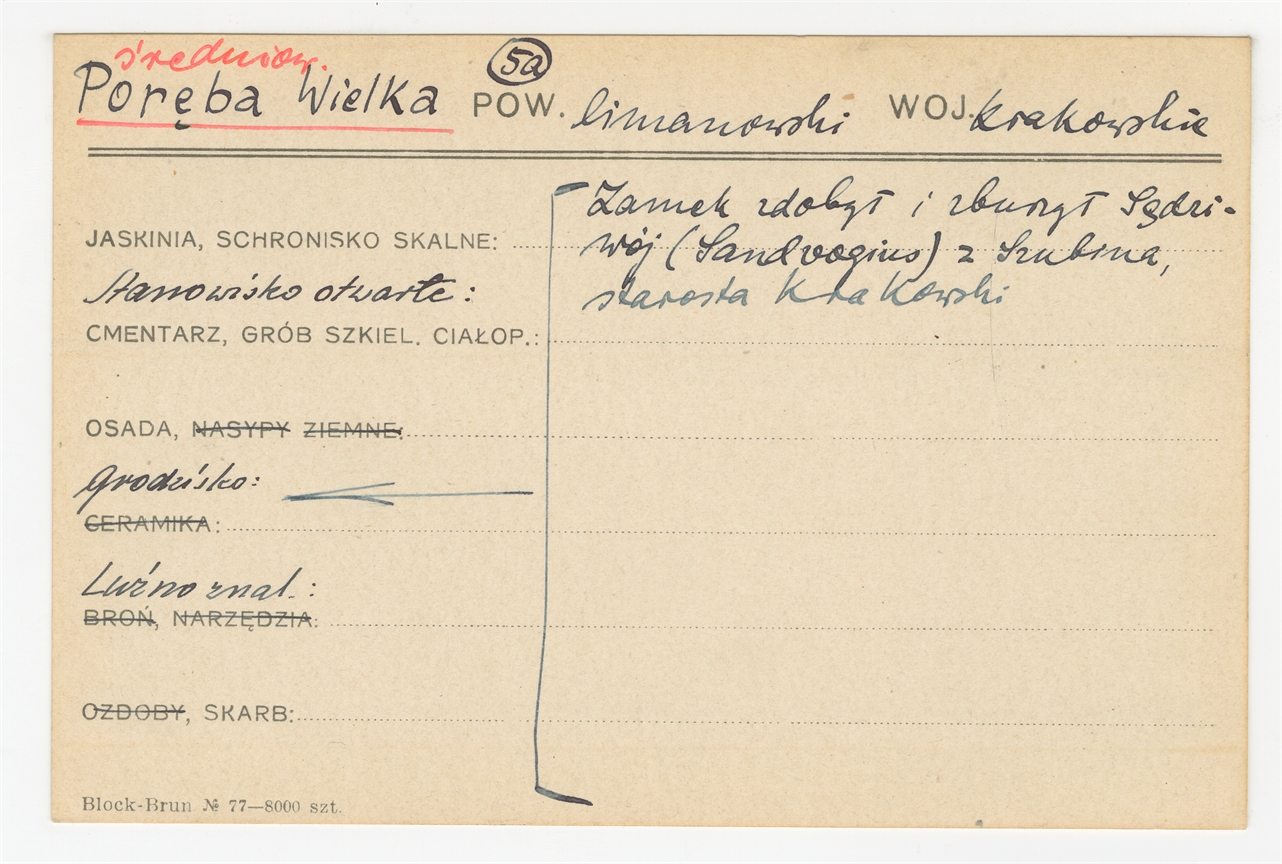 średniow. 5a
Poręba Wielka POW. limanowski WOJ. Krakowskie
Zamek zdobył i zburzył Sędzi-
JASKINIA, SCHRONISKO SKALNE: wój (Sandvogius) z Szubina,
Stanowisko otwarte: starosta Krakowski
CMENTARZ, GRÓB SZKIEL. CIAŁOP.:
OSADA, NASYPY ZIEMNE:
Grodzisko:
CERAMIKA:
Luźno znal.:
BROŃ, NARZĘDZIA:
OZDOBY, SKARB:
Block-Brun № 77—8000 szt.